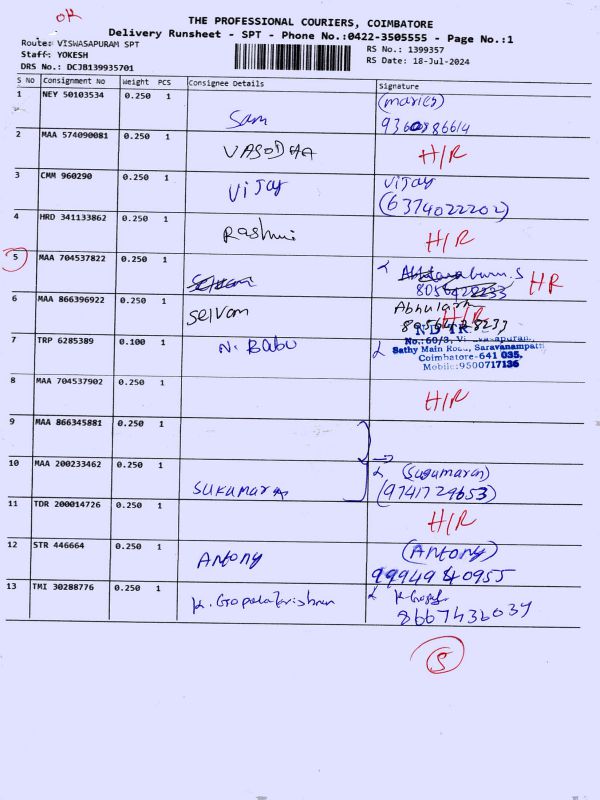 OK
THE PROFESSIONAL COURIERS, COIMBATORE
Delivery Runsheet - SPT - Phone No.:0422-3505555 - Page No.:1
Route: VISWASAPURAM SPT
RS No.: 1399357
Staff: YOKESH
RS Date: 18-Jul-2024
DRS No.: DCJB139935701
S NO Consignment No Weight PCS Consignee Details Signature
1 NEY 50103534 0.250 1 Sam (maries)
9360886614
2 MAA 574090081 0.250 1 VASODHA H/R
3 CMM 960290 0.250 1 Vijay Vijay
(6374022202)
4 HRD 341133862 0.250 1 Rashmi H/R
5 MAA 704537822 0.250 1 HR
6 MAA 866396922 0.250 1 Selvam
H/R
7 TRP 6285389 0.100 1 N. Babu
No.:60/3,
Sathy Main Road, Saravanampatti
Coimbatore-641 035,
Mobile:9500717136
8 MAA 704537902 0.250 1 H/R
9 MAA 866345881 0.250 1
10 MAA 200233462 0.250 1 Sukumara (Sugumaran)
(9741729653)
11 TDR 200014726 0.250 1 H/R
12 STR 446664 0.250 1 Antony (Antony)
9994940955
13 TMI 30288776 0.250 1 K. Gopalakrishnan
8667436039
5